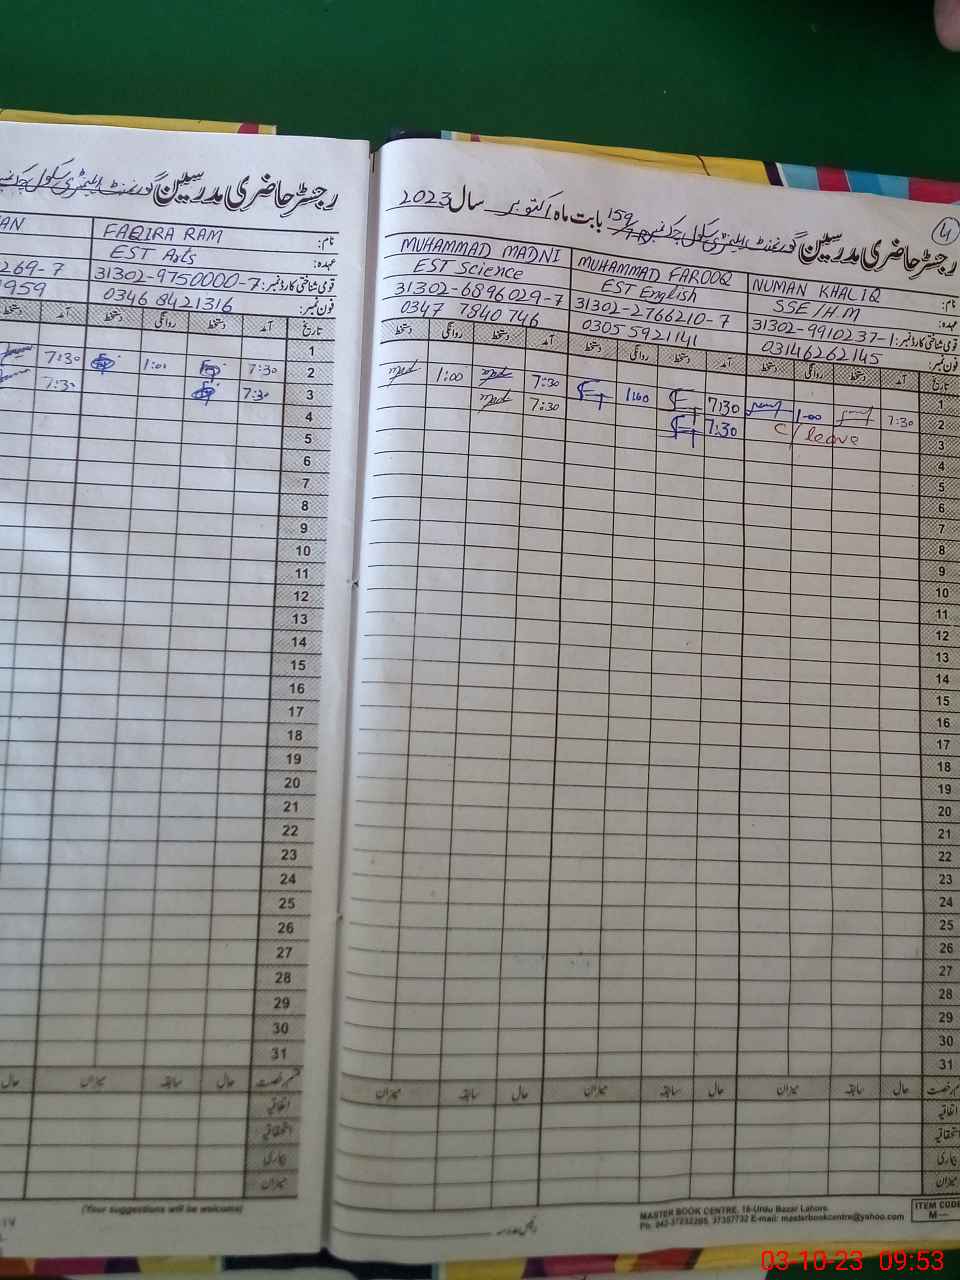 رجسٹر حاضری مدرسین گورنمنٹ ایلیمنٹری سکول
نام: FAQIRA RAM
عہدہ: EST Arts
قومی شناختی کارڈ نمبر: 31302-9750000-7
فون نمبر: 0346 8421316
AN
269-7
1959
تاریخ آمد دستخط روانگی دستخط
1
2 7:30 1:01 7:30
3 7:30 7:30
4
5
6
7
8
9
10
11
12
13
14
15
16
17
18
19
20
21
22
23
24
25
26
27
28
29
30
31
حال سابقہ میزان حال
اتفاقیہ
استحقاقیہ
بیماری
میزان
(Your suggestions will be welcome)
4
رجسٹر حاضری مدرسین گورنمنٹ ایلیمنٹری سکول چک نمبر 159 بابت ماہ اکتوبر سال 2023
نام: NUMAN KHALIQ MUHAMMAD FAROOQ MUHAMMAD MADNI
عہدہ: SSE/H.M EST English EST Science
قومی شناختی کارڈ نمبر: 31302-9910237-1 31302-2766210-7 31302-6896029-7
فون نمبر: 03146262145 0305 5921141 0347 7840746
تاریخ آمد دستخط روانگی دستخط آمد دستخط روانگی دستخط آمد دستخط روانگی دستخط
1
2 7:30 1:00 7:30 1:00 7:30 1:00
3 C/leave 7:30 7:30
4
5
6
7
8
9
10
11
12
13
14
15
16
17
18
19
20
21
22
23
24
25
26
27
28
29
30
31
حال سابقہ میزان حال سابقہ میزان حال سابقہ میزان
اتفاقیہ
استحقاقیہ
بیماری
میزان
MASTER BOOK CENTRE, 16-Urdu Bazar Lahore.
Ph: 042-37232265, 37357732 E-mail: masterbookcentre@yahoo.com
ITEM CODE
M—
03-10-23 09:53